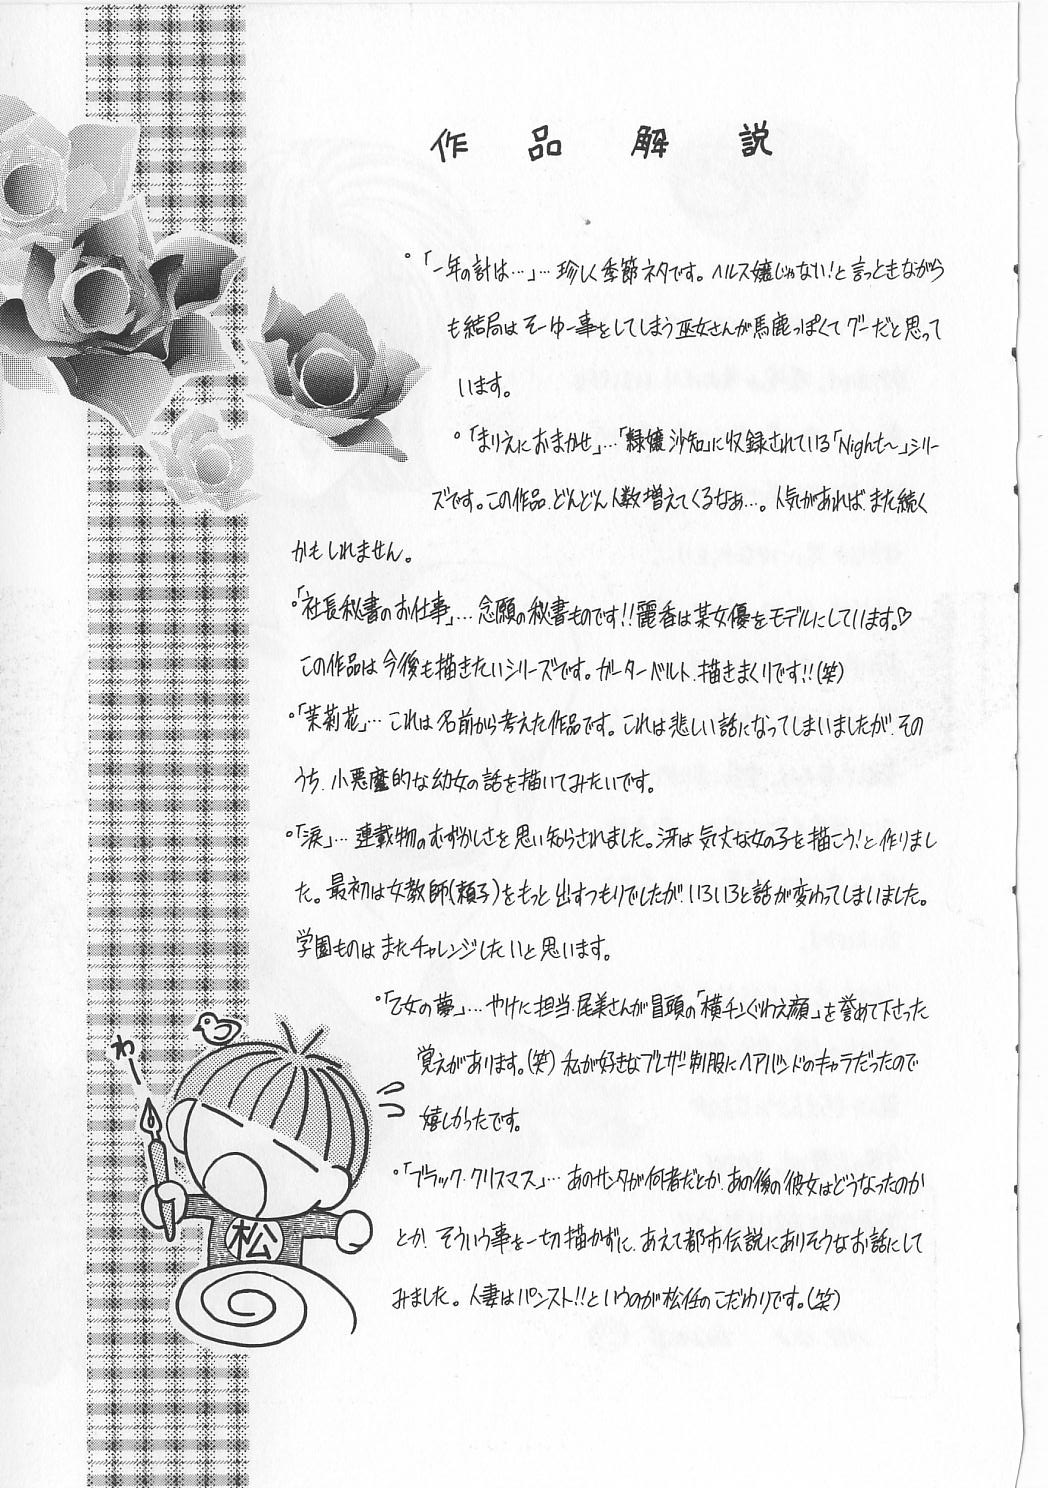 作品解説
・「一年の計は…」…珍しく季節ネタです。ヘルス嬢じゃない!と言っときながら
も結局はそーゆー事をしてしまう巫女さんが馬鹿っぽくてグーだと思って
います。
・「まりえにおまかせ」…「緑嬢沙知」に収録されている「Night〜」シリー
ズです。この作品、どんどん人数増えてくるなぁ…。人気があれば、また続く
かもしれません。
・「社長秘書のお仕事」…念願の秘書ものです!!麗香は某女優をモデルにしています。♡
この作品は今後も描きたいシリーズです。ガーターベルト、描きまくりです!!(笑)
・「茉莉花」…これは名前から考えた作品です。これは悲しい話になってしまいましたが、その
うち、小悪魔的な幼女の話を描いてみたいです。
・「涙」…連載物のむずかしさを思い知らされました。冴は気丈な女の子を描こう!と作りまし
た。最初は女教師(頼子)をもっと出すつもりでしたが、いろいろと話が変わってしまいました。
学園ものはまたチャレンジしたいと思います。
・「乙女の夢」…やけに担当・尾美さんが冒頭の「横チンぐわえ顔」を誉めて下さった
覚えがあります。(笑)私が好きなブレザー制服にヘアバンドのキャラだったので
嬉しかったです。
・「ブラック・クリスマス」…あのサンタが何者だとか、あの後の彼女はどうなったのか
とか、そういう事を一切描かずに、あえて都市伝説にありそうなお話にして
みました。人妻はパンスト!!というのが松任のこだわりです。(笑)
わー
松